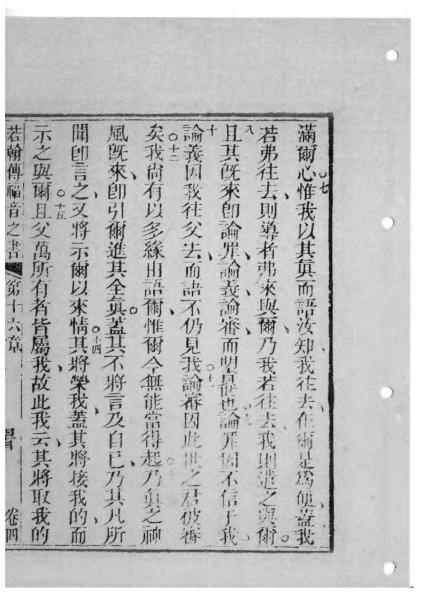 滿爾心惟我以其眞而語汝知我徃去在爾是爲便蓋我
若弗徃去則導者弗來與爾乃我若徃去我則遣之與爾
且其旣來卽論罪論義論審而世也論罪因不信于我
論義因我徃父去而語不仍見我論審因此世之君彼審
矣我尙有以多緣由語爾惟爾今無能當得起乃眞之神
風旣來卽引爾進其全眞蓋其不將言及自已乃其凡所
聞卽言之又將示爾以來情其將榮我蓋其將接我的而
示之與爾且父萬所有者皆屬我故此我云其將取我的
若翰傳福音之書 第十六章 卷四
七
八
十
十二
十五
十四